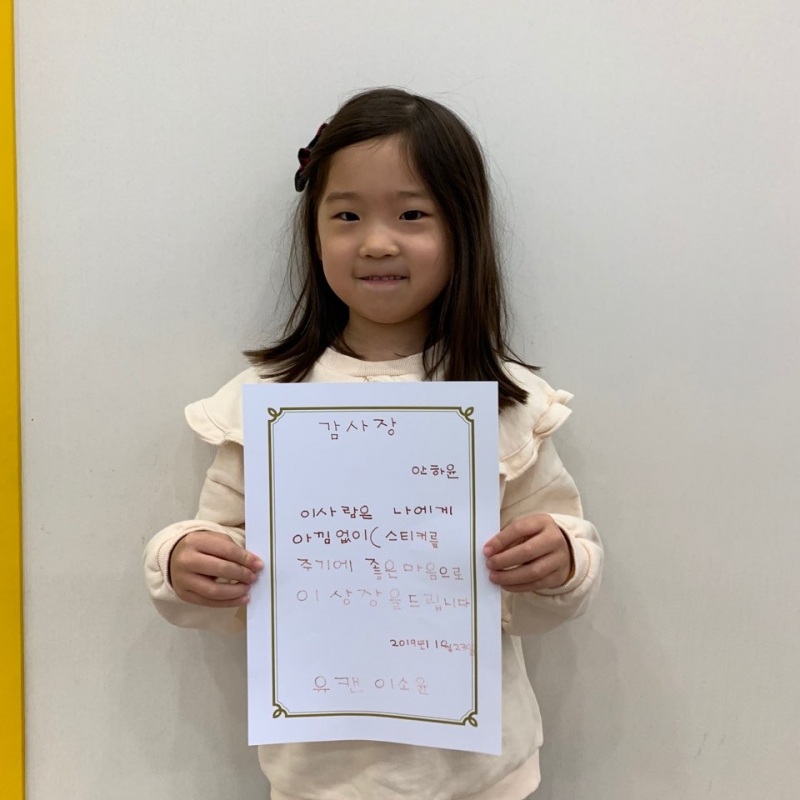 감사장
안하윤
이사람은 나에게
아낌없이(스티커를
주기에 좋은마음으로
이 상장을드립니다
2019년 1월23일
유캔 이소윤